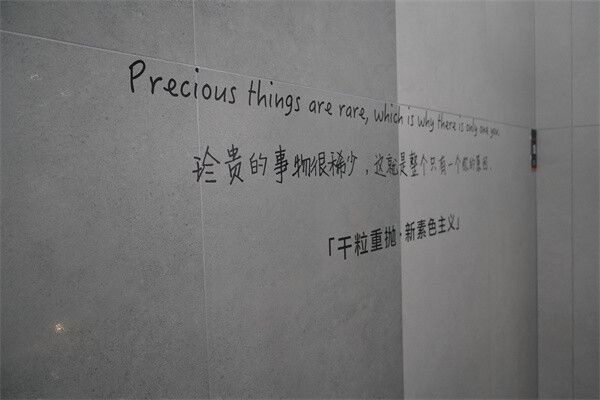 Precious things are rare, which is why there is only one you.
珍贵的事物很稀少，这就是整个只有一个你的原因.
「干粒重抛·新素色主义」